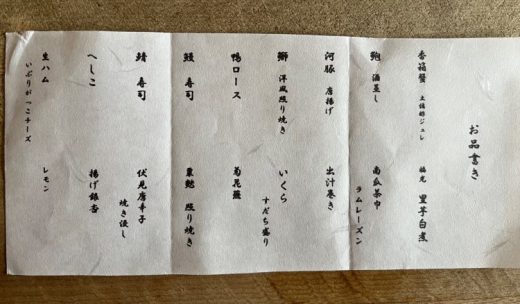 お品書き
香箱蟹 土佐酢ジュレ
福光 里芋白煮
鮑 酒蒸し
南瓜茶巾
ラムレーズン
河豚 唐揚げ
出汁巻き
鰤 洋風照り焼き
いくら
すだち盛り
鴨ロース
菊花蕪
鰻 寿司
粟麩 照り焼き
鯖 寿司
伏見唐辛子
焼き浸し
へしこ
揚げ銀杏
生ハム
いぶりがっこチーズ
レモン